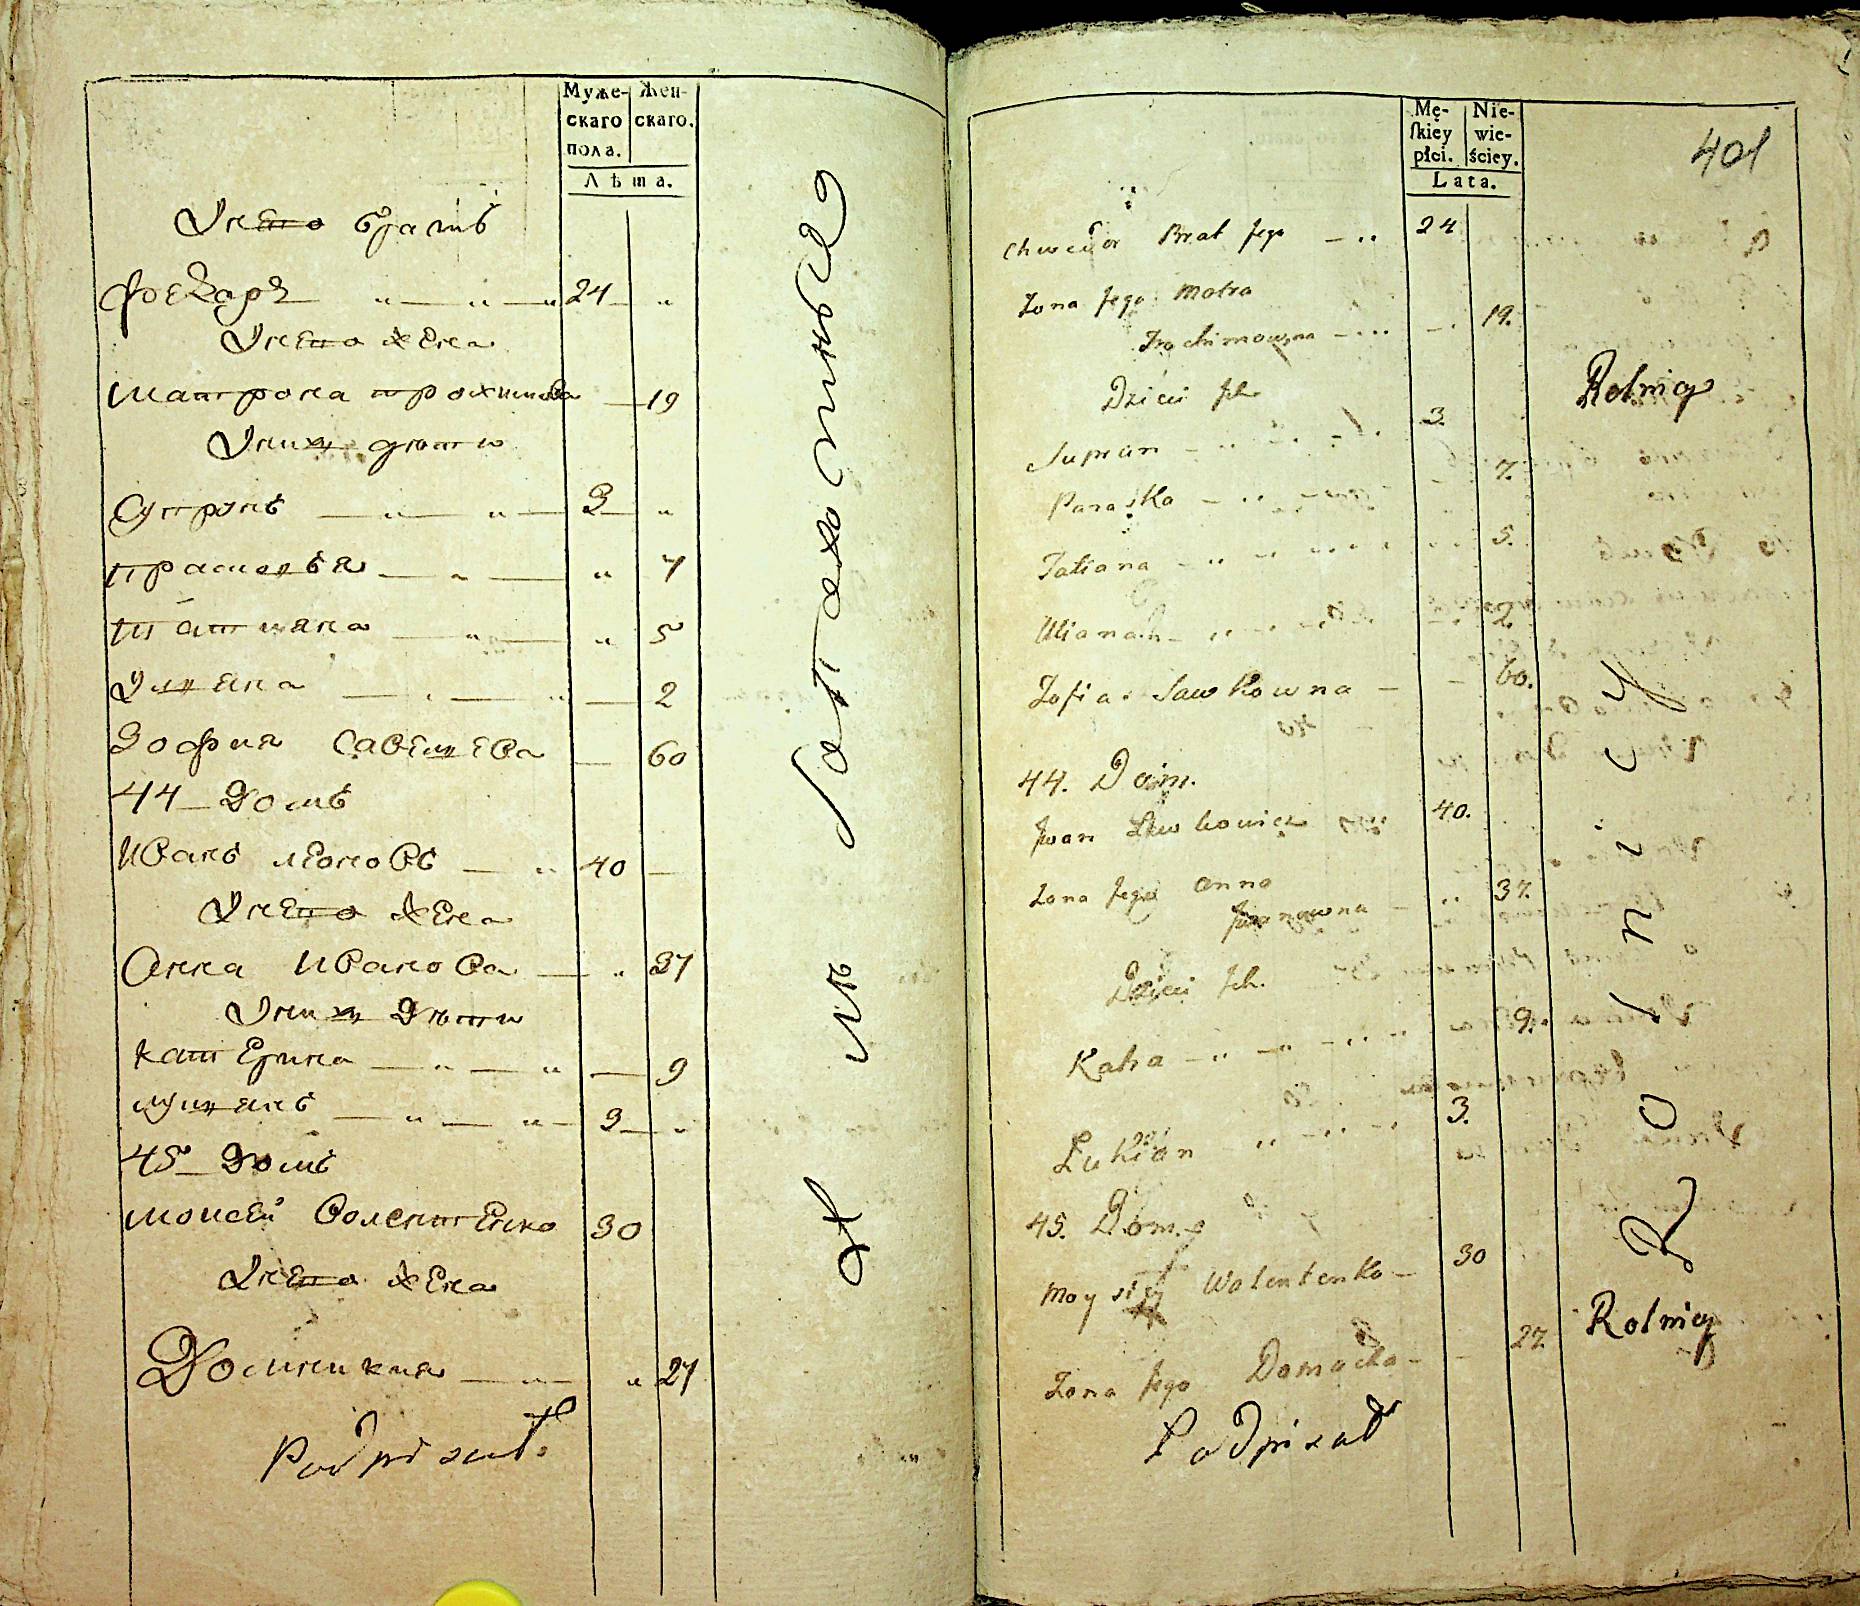 Муже-
скаго
пола.
Жен-
скаго.
Лѣта.
Унего братъ
Фекаръ 24
Унего жена
Матрона трохимова 19
Униχъ дѣти
Супрунъ 3
прасковья 7
Татияна 5
Улияна 2
Зофия Савельева 60
44 Домъ
Иванъ леоновъ 40
Унего жена
Анна Иванова 37
Унихъ Дѣти
катерина 9
лукиянъ 3
45 Домъ
моисей Волентенко 30
Унего жена
Доминикия 27
Podpisał
Хлебопашцы
Mę-
ſkiey
płci.
Nie-
wie-
ściey.
Lata.
401
Chwedor Brat Jego 24
Zona Jego Motra
Trochimowna 19.
Dzieci Jch
Rolnicy
Suprun 3.
Paraska 7.
Tatiana 5.
Uliana 2.
Zofia Sawkowna 60.
44. Dom.
Jwan Lewkowicz 40.
Zona Jego Anna
Jwanowna 37.
Dzieci Jch.
Katra 9.
Lukian 3.
45. Dom.
Moysiey Wolentenko 30
Zona Jego Domacka 27.
Rolnicy
Podpisał
Rolnicy